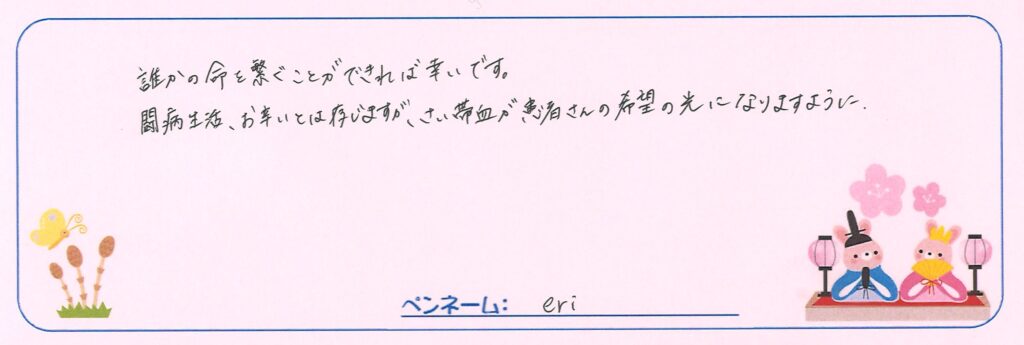 誰かの命を繋ぐことができれば幸いです。
闘病生活、お辛いとは存じますが、さい帯血が患者さんの希望の光になりますように.
ペンネーム: eri